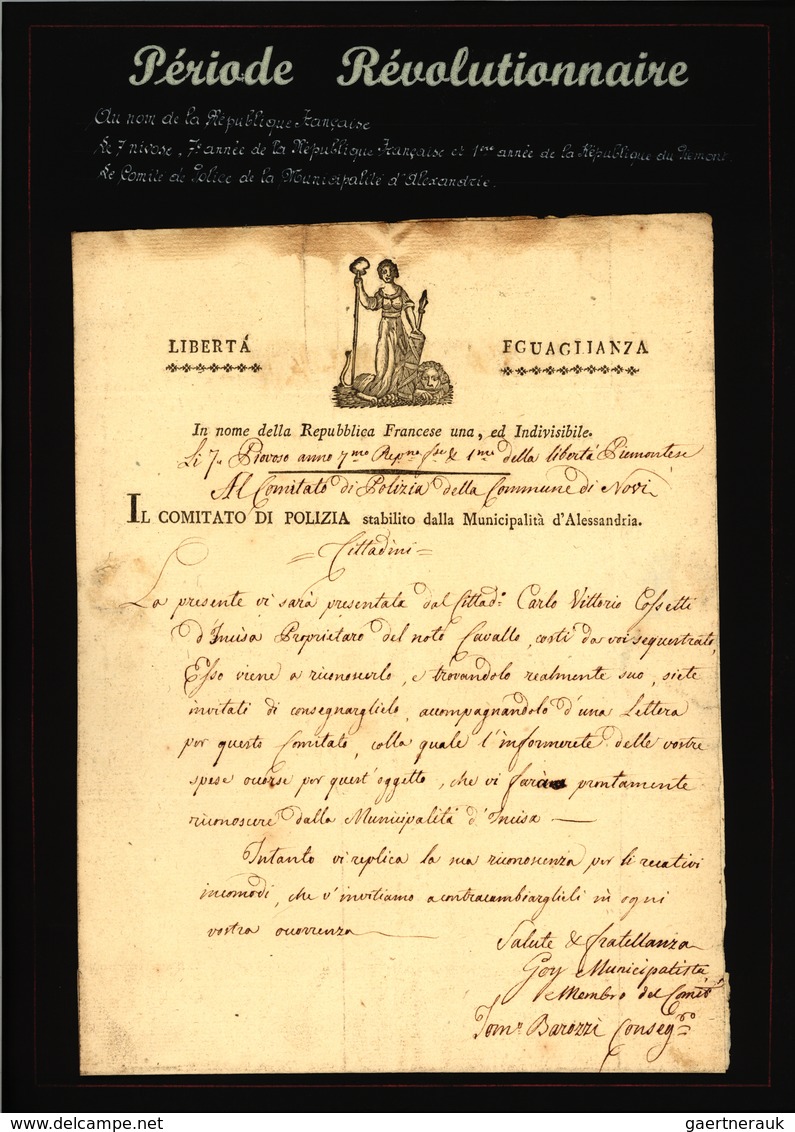 Période Révolutionnaire
Au nom de la République Française
Le 7 nivose, 7e année de la République Française et 1ère année de la République du Piemont.
Le Comite de Police de la Municipalité d'Alexandrie.
LIBERTÁ EGUAGLIANZA
In nome della Repubblica Francese una, ed Indivisibile.
Li 7. Piovoso anno 7.mo Rep.no fse & 1.mo della libertà Piemontese
Al Comitato di Polizia della Commune di Novi
IL COMITATO DI POLIZIA stabilito dalla Municipalità d'Alessandria.
= Cittadini =
La presente vi sarà presentata dal Cittad.o Carlo Vittorio Cossetti
d'Incisa Proprietaro del noto Cavallo, costì da voi sequestrato,
Esso viene a riconoscerlo, e trovandolo realmente suo, siete
invitati di consegnarglielo, accompagnandolo d'una Lettera
per questo Comitato, colla quale l'informerete delle vostre
spese occorse per quest'oggetto, che vi farà prontamente
riconoscere dalla Municipalità d'Incisa —
Intanto vi replica la sua riconoscenza per li recativi
incomodi, che v'invitiamo a contracambiarglieli in ogni
vostra occorrenza —
Salute & fratellanza
Goy Municipalista
Membro del Comit.o
Tom.o Barozzi Conseg.ro
delcampe.net
gaertnerauk